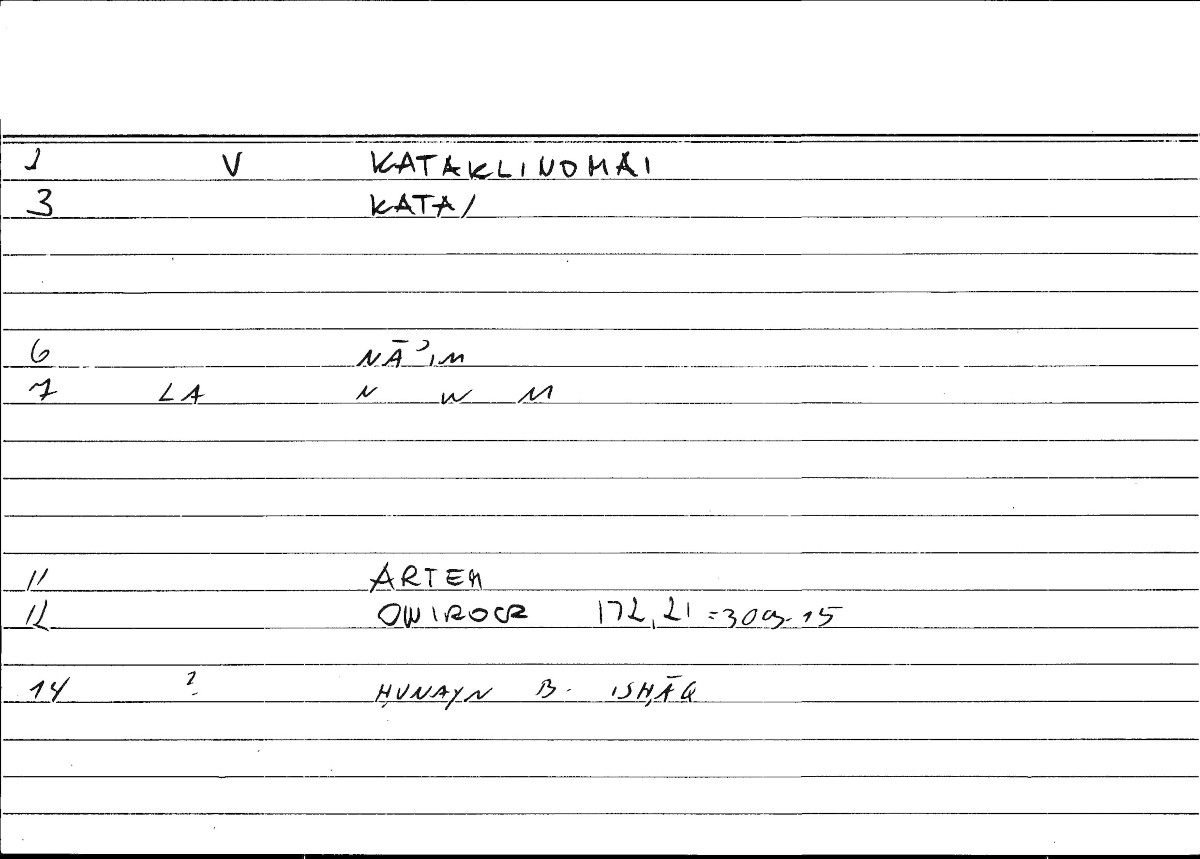 1 V KATAKLINOMAI
3 KATA/
6 NĀʾIM
7 LA N W M
11 ARTEM
12 ONIROCR 172,21 = 309.15
14 ? ḤUNAYN B. ISḤĀQ